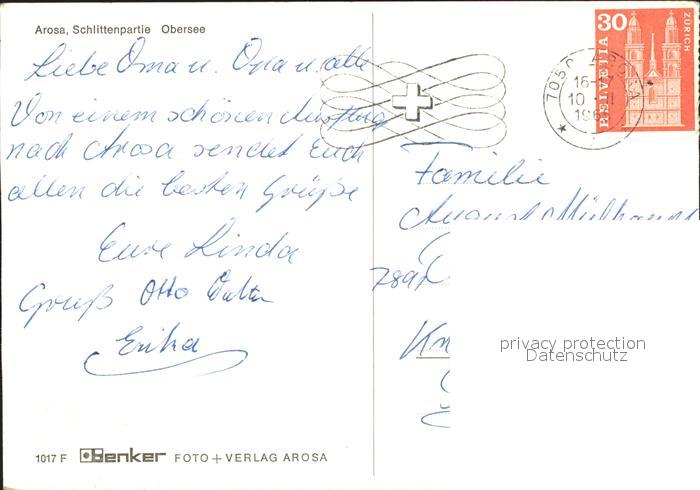 Arosa, Schlittenpartie Obersee
Liebe Oma u. Opa u. alle
Von einem schönen Ausflug
nach Arosa sendet Euch
allen die besten Grüße
Eure Linda
Gruß Otto Walter
Erika
1017 F Benker FOTO + VERLAG AROSA
30
HELVETIA
ZÜRICH
7050 AROSA
16-
10
196
Familie
August
789
privacy protection
Datenschutz